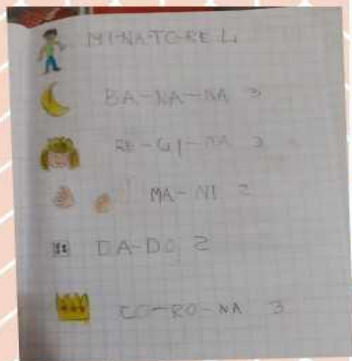 MI-NA-TO-RE 4
BA-NA-NA 3
RE-GI-NA 3
MA-NI 2
DA-DO 2
CO-RO-NA 3